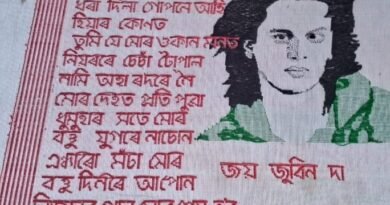 ধৰা দিলা গোপনে আহি
হিয়াৰ কোণত
তুমি যে মোৰ শুকান মনত
নিয়ৰৰে চেঁচা টোপাল
নামি অহা ৰ'দৰে নৈ
মোৰ দেহত প্ৰতি পুৱা
ধুমুহাৰ সতে মোৰ
বহু যুগৰে নাচোন
এন্ধাৰো মঁচা মোৰ
বহু দিনৰে আপোন
জয় জুবিন দা